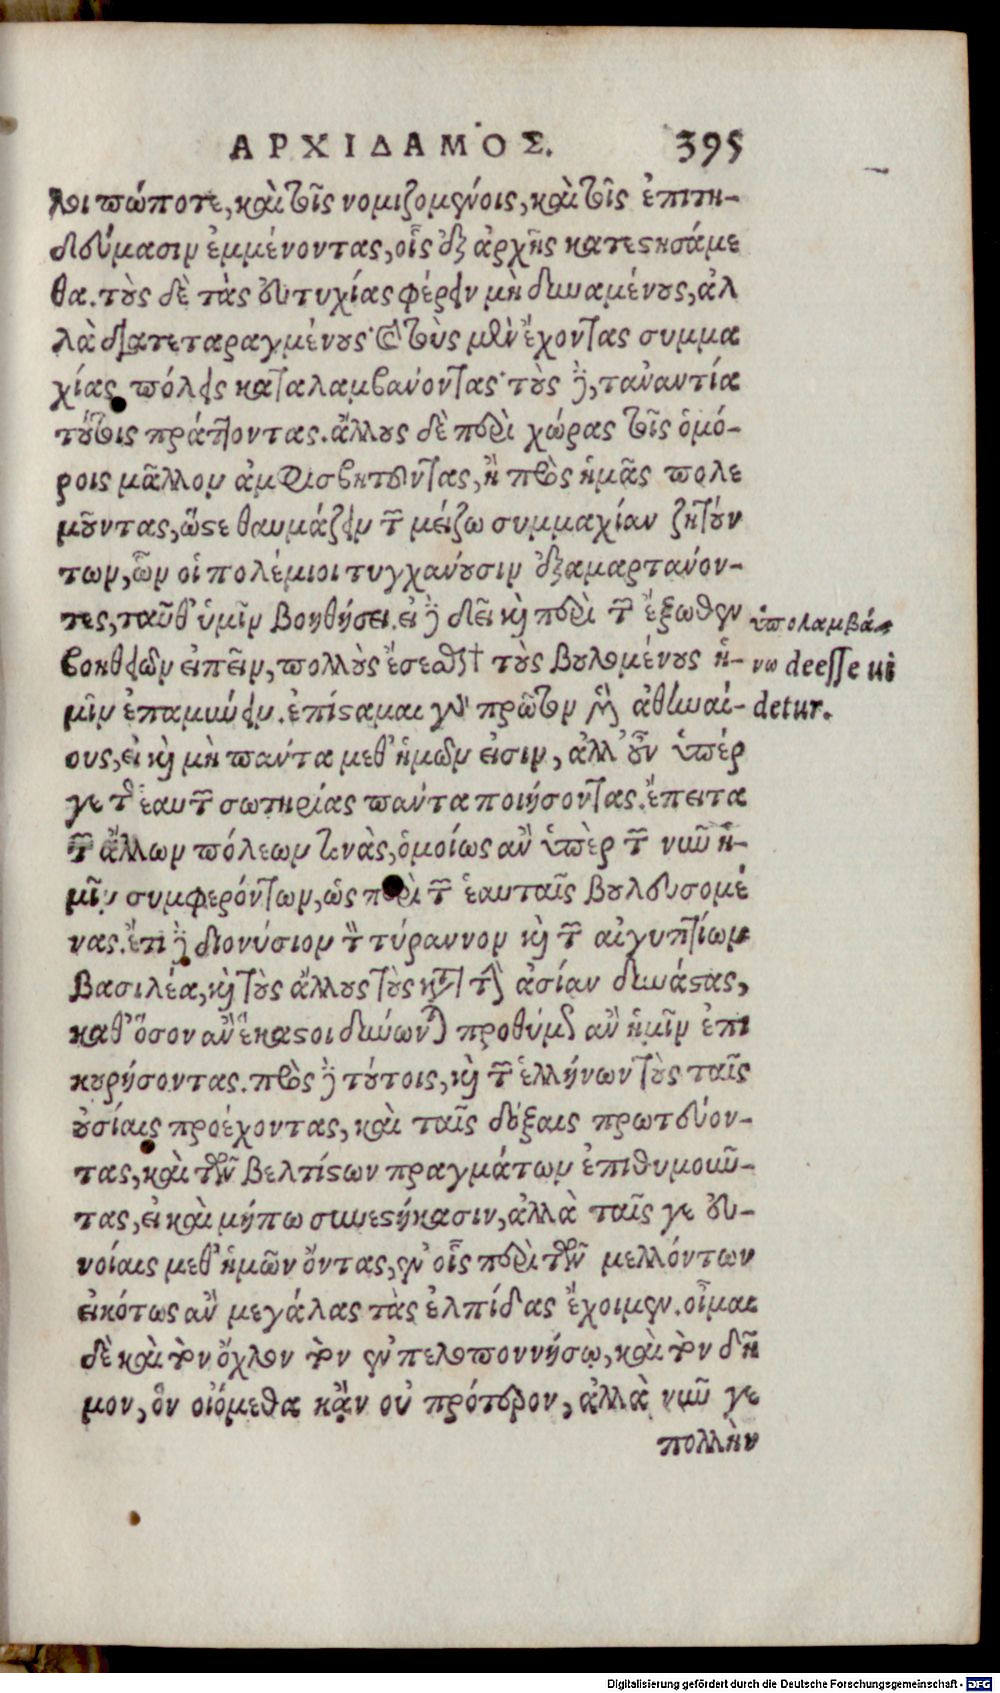 ΑΡΧΙΔΑΜΟΣ. 395
λοι πώποτε, καὶ τοῖς νομιζομένοις, καὶ τοῖς ἐπιτη-
δεύμασιν ἐμμένοντας, οἷς ἐξ ἀρχῆς κατεστησάμε
θα. τοὺς δὲ τὰς εὐτυχίας φέρειν μὴ δυναμένους, ἀλ
λὰ διατεταραγμένους· καὶ τοὺς μὲν ἔχοντας συμμα
χίας πόλεις καταλαμβάνοντας· τοὺς δὲ, τἀναντία
τούτοις πράττοντας. ἄλλους δὲ περὶ χώρας τοῖς ὁμό-
ροις μᾶλλον ἀμφισβητοῦντας, ἢ πρὸς ἡμᾶς πολε
μοῦντας, ὥστε θαυμάζειν τῶν μείζω συμμαχίαν ζητούν
των, ὧν οἱ πολέμιοι τυγχάνουσιν ἐξαμαρτάνον-
τες, ταῦθ' ὑμῖν βοηθήσει. εἰ δὲ δεῖ καὶ περὶ τῶν ἔξωθεν
βοηθειῶν εἰπεῖν, πολλοὺς ἔσεσθαι† τοὺς βουλομένους ἡ-
μῖν ἐπαμύνειν. ἐπίσταμαι γὰρ πρῶτον μὲν ἀθηναί-
ους, εἰ καὶ μὴ πάντα μεθ' ἡμῶν εἰσιν, ἀλλ' οὖν ὑπέρ
γε τῆς ἑαυτῶν σωτηρίας πάντα ποιήσοντας. ἔπειτα
τῶν ἄλλων πόλεων τινὰς, ὁμοίως ἂν ὑπὲρ τῶν νῦν ἡ-
μῖν συμφερόντων, ὡς περὶ τῶν ἑαυταῖς βουλευσομέ
νας. ἔτι δὲ διονύσιον τὸν τύραννον καὶ τῶν αἰγυπτίων
βασιλέα, καὶ τοὺς ἄλλους τοὺς κατὰ τὴν ἀσίαν δυνάστας,
καθ' ὅσον ἂν ἕκαστοι δύνωνται προθύμως ἂν ἡμῖν ἐπι
κουρήσοντας. πρὸς δὲ τούτοις, καὶ τῶν ἑλλήνων τοὺς ταῖς
οὐσίαις προέχοντας, καὶ ταῖς δόξαις πρωτεύον-
τας, καὶ τῶν βελτίστων πραγμάτων ἐπιθυμοῦν-
τας, εἰ καὶ μήπω συνεστήκασιν, ἀλλὰ ταῖς γε εὐ-
νοίαις μεθ' ἡμῶν ὄντας, ἐν οἷς περὶ τῶν μελλόντων
εἰκότως ἂν μεγάλας τὰς ἐλπίδας ἔχοιμεν. οἶμαι
δὲ καὶ τὸν ὄχλον τὸν ἐν πελοποννήσῳ, καὶ τὸν δῆ
μον, ὃν οἰόμεθα κἂν οὐ πρότερον, ἀλλὰ νῦν γε
πολλὴν
ὑπολαμβά-
νω deesse ui
detur.
Digitalisierung gefördert durch die Deutsche Forschungsgemeinschaft - DFG